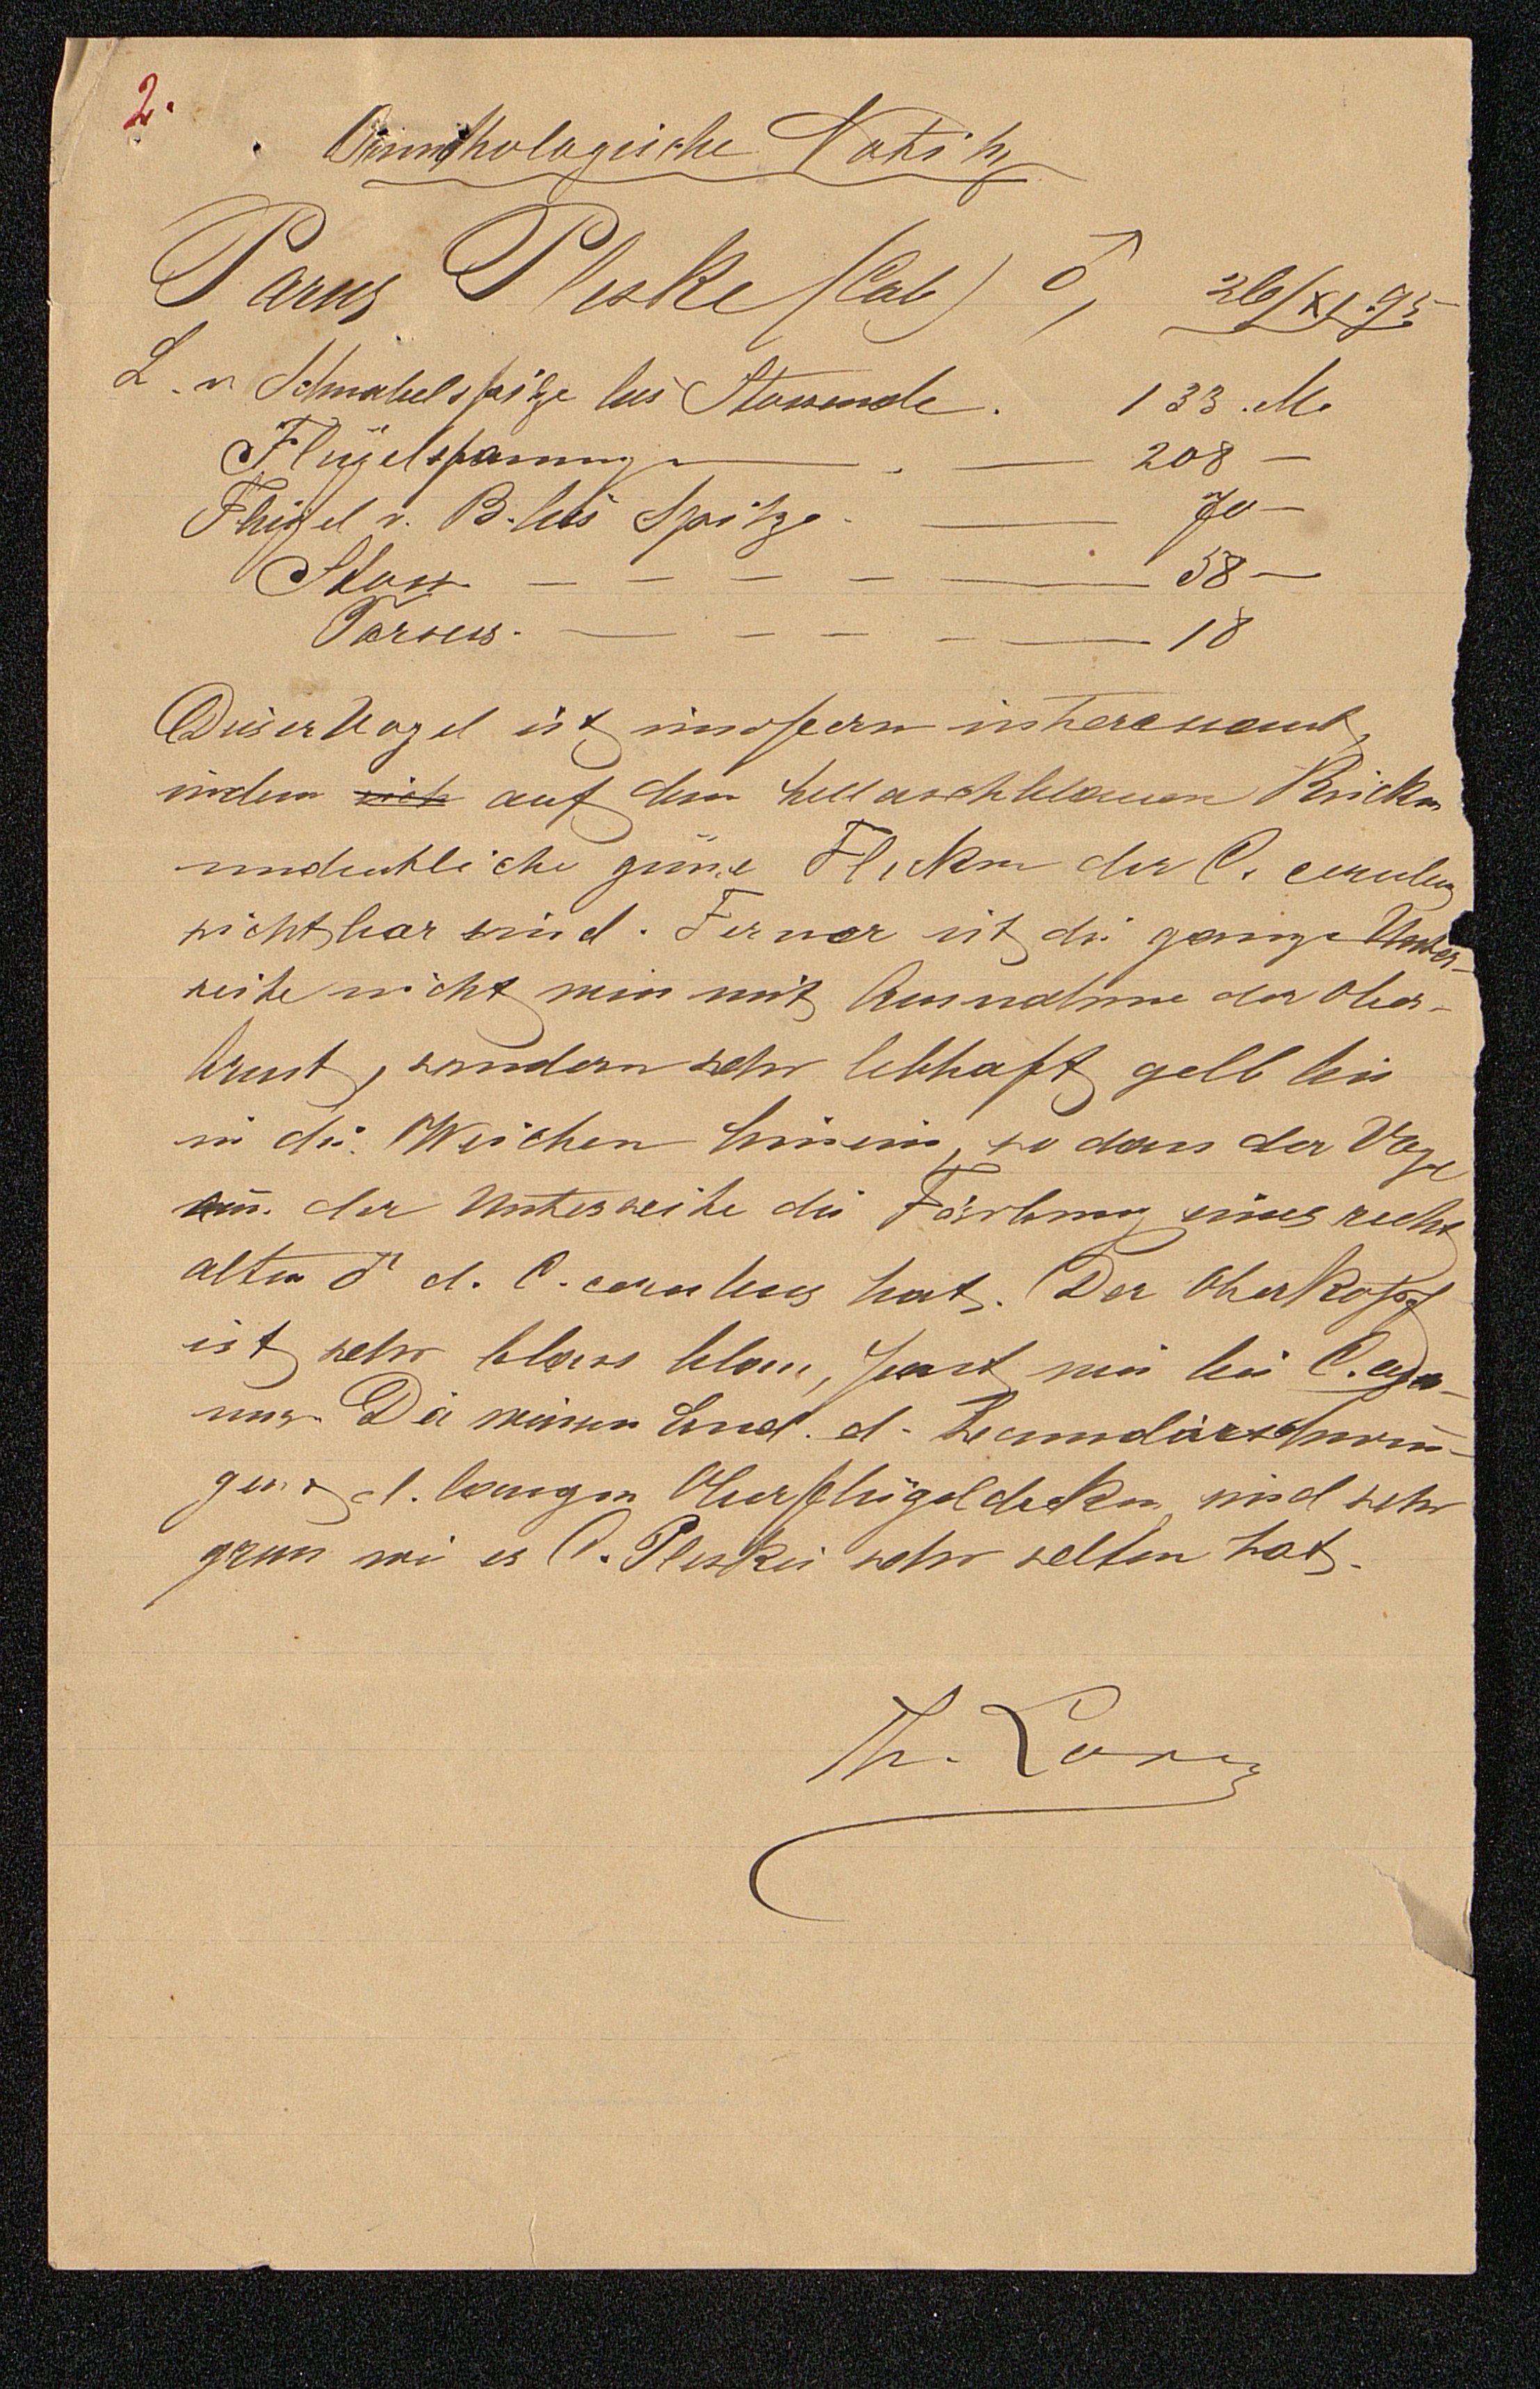 2.
Ornithologische Notitz
Parus Pleske (Cab) ♂, 26/XI.95
L. v. Schnabelspitze bis Stossende. 133. M.
Flügelspannung — . — 208 —
Flügel v. B. bis Spitze. — 70 —
Stoss — — — — — 58 —
Tarsus. — — — — — 18
Dieser Vogel ist insofern interessant,
indem sich auf dem hellaschblauen Rücken
undeutliche grüne Flecken der C. ceruleus
sichtbar sind. Ferner ist die ganze Unter-
seite nicht weis mit Ausnahme der Ober-
brust, sondern sehr lebhaft gelb bis
in die Weichen hinein, so dass der Vogel
an der Unterseite die Färbung eines recht
alten ♂ d. C. ceruleus hat. Der Oberkopf
ist sehr blass blau, fast wie bei C. cya-
nus. Die weissen End. d. Secundärschwin-
gen d. langen Oberflügeldecken sind sehr
gross wie es C. Pleskei sehr selten hat.
Th. Lorenz